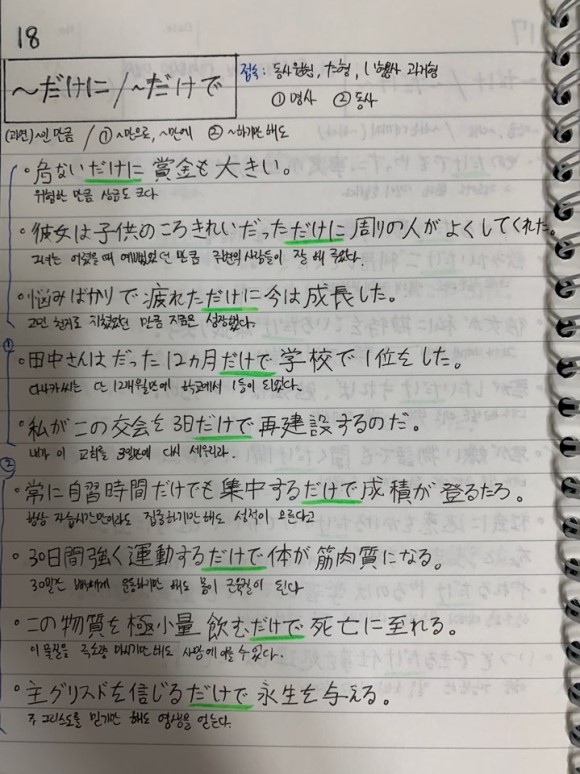 18
~だけに / ~だけで
접속 : 동사원형, た형, い형용사 과거형
① 명사 ② 동사
(과연) ~인 만큼 / ① ~만으로, ~만에 ② ~하기만 해도
・危ないだけに賞金も大きい。
위험한 만큼 상금도 크다
・彼女は子供のころきれいだっただけに周りの人がよくしてくれた。
그녀는 어렸을 때 예뻤었던 만큼 주변의 사람들이 잘 해 주었다.
・悩みばかりで疲れただけに今は成長した。
고민 천지로 지쳤었던 만큼 지금은 성장했다.
①
・田中さんはだった12ヵ月だけで学校で1位をした。
다나카씨는 단 12개월만에 학교에서 1등이 되었다.
・私がこの交会を3日だけで再建設するのだ。
내가 이 교회를 3일만에 다시 세우리라.
②
・常に自習時間だけでも集中するだけで成積が登るたろ。
항상 자습시간만이라도 집중하기만 해도 성적이 오르다고
・30日間強く運動するだけで体が筋肉質になる。
30일간 운동하기만 해도 몸이 근육질이 된다
・この物質を極小量飲むだけで死亡に至れる。
이 물질을 극소량 마시기만 해도 사망에 이를 수 있다.
・主グリスドを信じるだけで永生を与える。
주 그리스도를 믿기만 해도 영생을 얻는다.